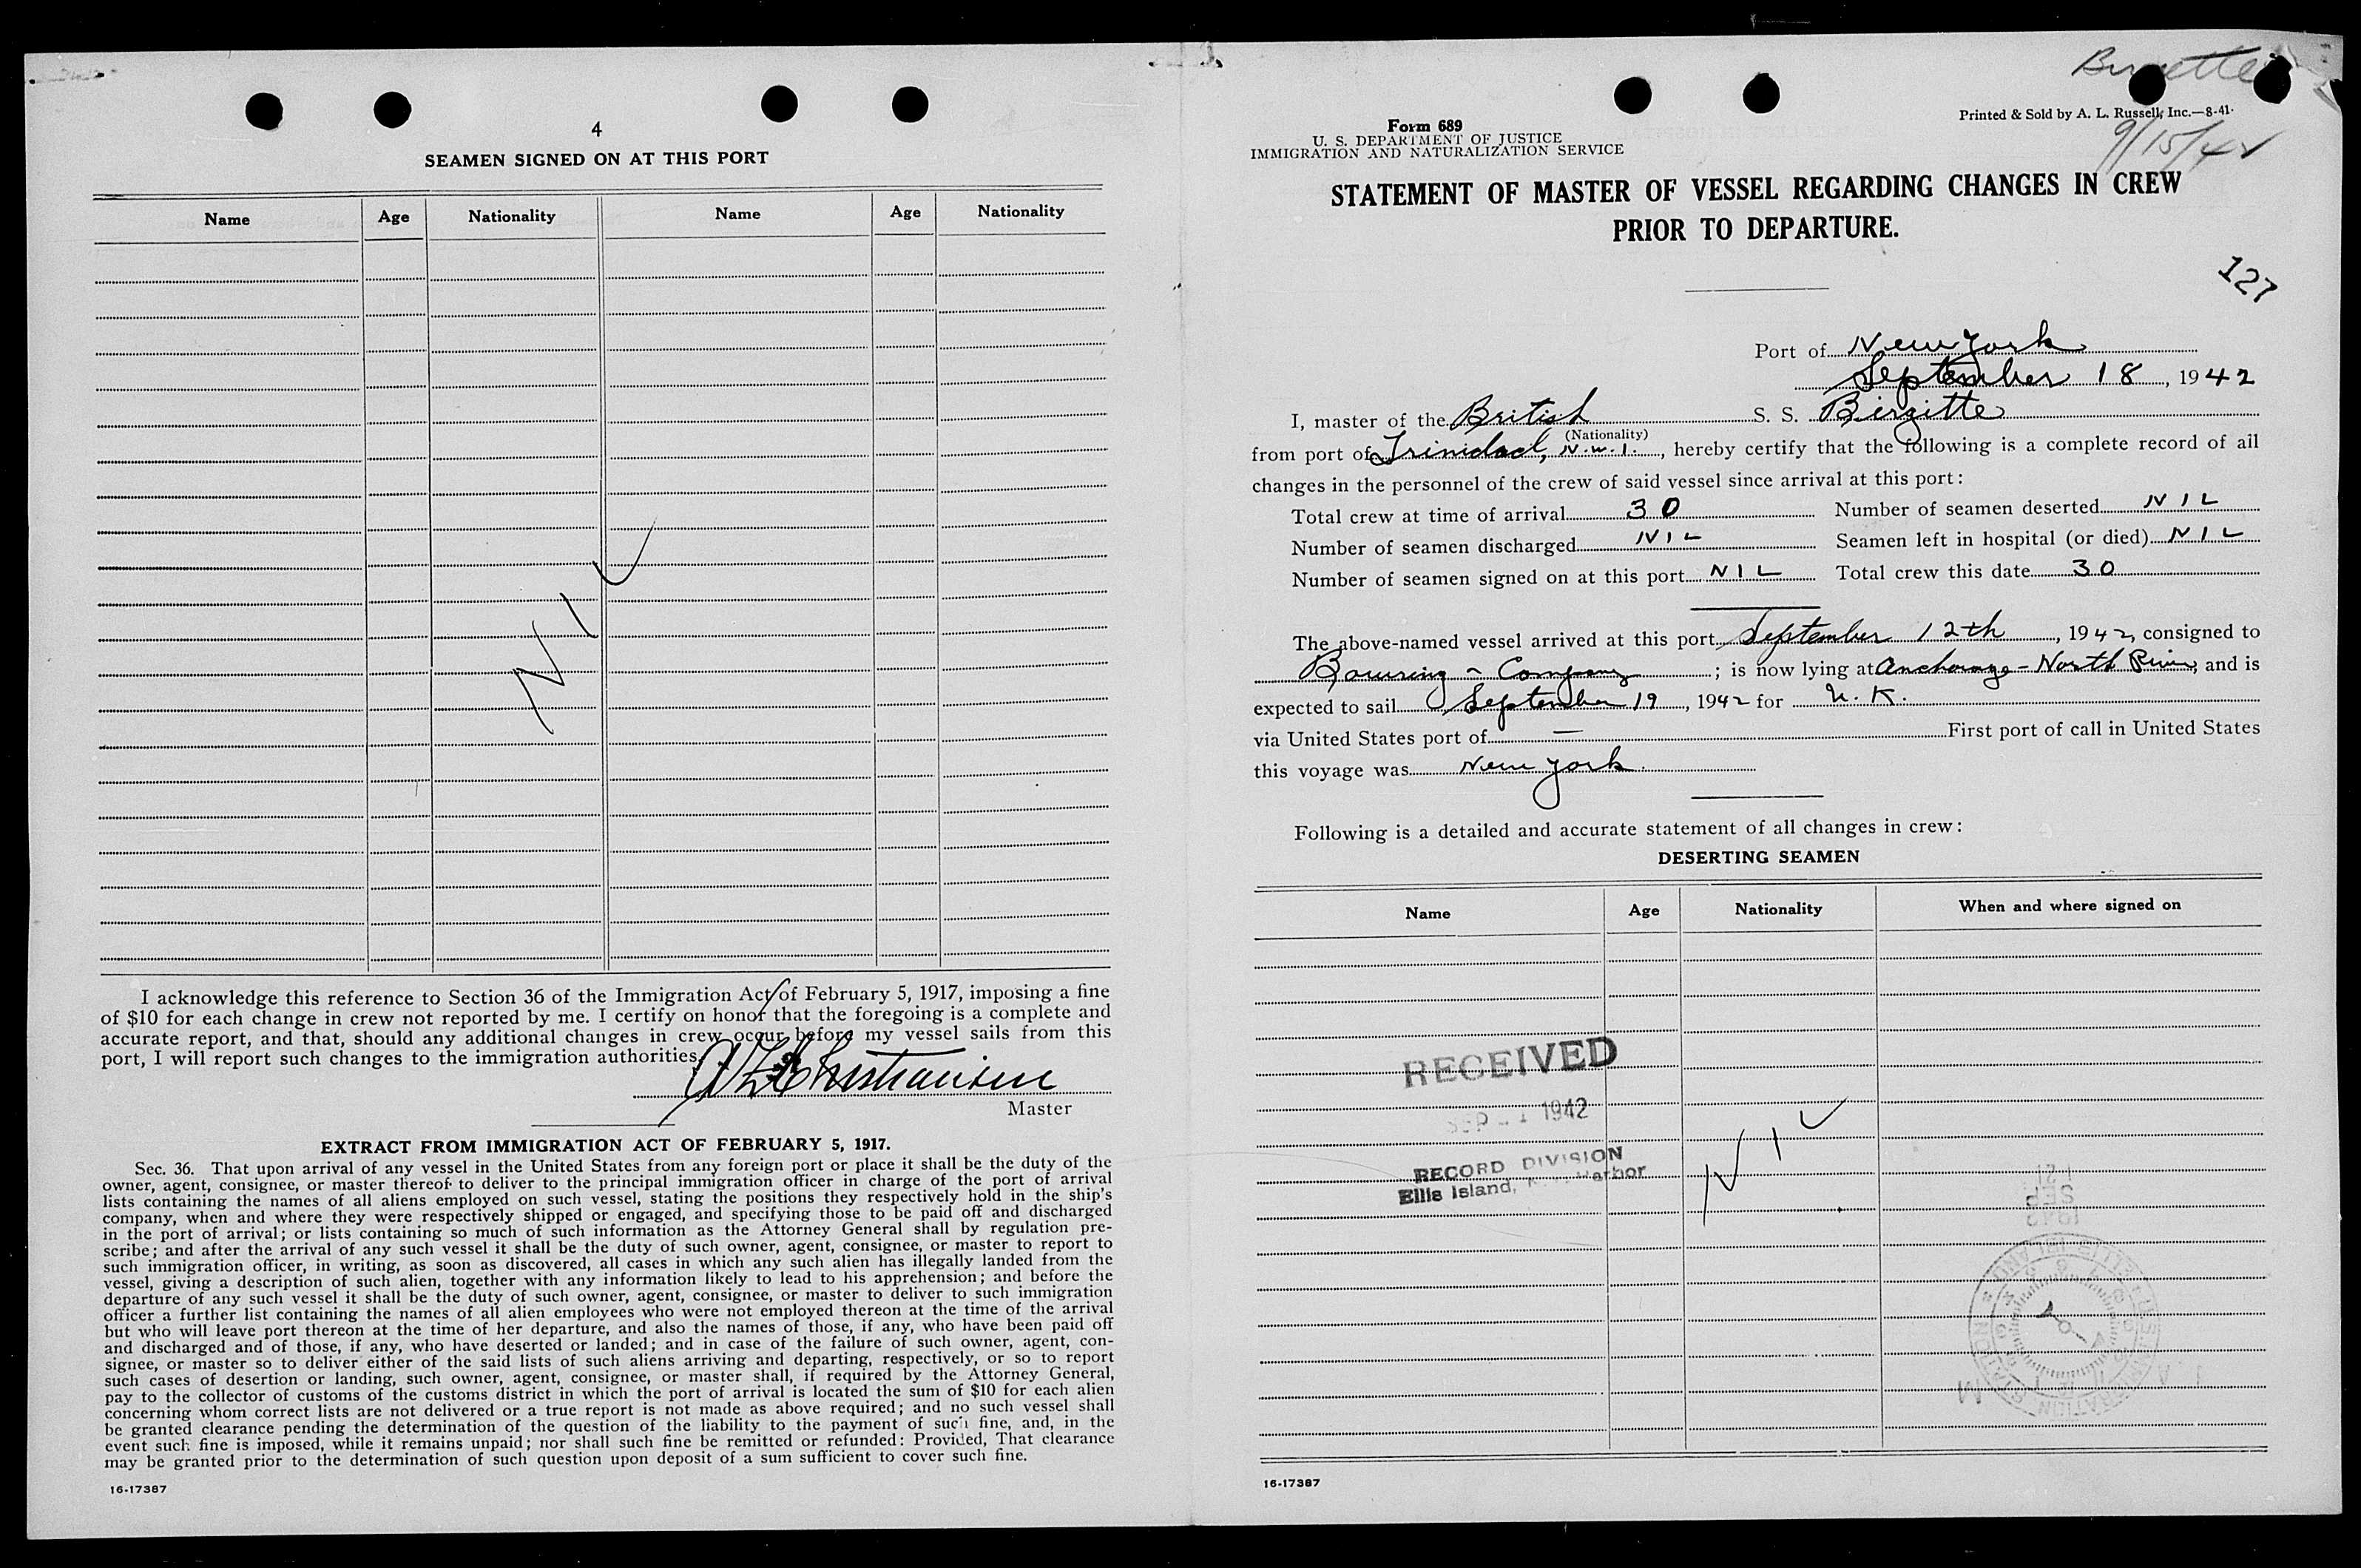 4
SEAMEN SIGNED ON AT THIS PORT
Name Age Nationality Name Age Nationality
NIL
I acknowledge this reference to Section 36 of the Immigration Act of February 5, 1917, imposing a fine
of $10 for each change in crew not reported by me. I certify on honor that the foregoing is a complete and
accurate report, and that, should any additional changes in crew occur before my vessel sails from this
port, I will report such changes to the immigration authorities.
Christiansen
Master
EXTRACT FROM IMMIGRATION ACT OF FEBRUARY 5, 1917.
Sec. 36. That upon arrival of any vessel in the United States from any foreign port or place it shall be the duty of the
owner, agent, consignee, or master thereof to deliver to the principal immigration officer in charge of the port of arrival
lists containing the names of all aliens employed on such vessel, stating the positions they respectively hold in the ship's
company, when and where they were respectively shipped or engaged, and specifying those to be paid off and discharged
in the port of arrival; or lists containing so much of such information as the Attorney General shall by regulation pre-
scribe; and after the arrival of any such vessel it shall be the duty of such owner, agent, consignee, or master to report to
such immigration officer, in writing, as soon as discovered, all cases in which any such alien has illegally landed from the
vessel, giving a description of such alien, together with any information likely to lead to his apprehension; and before the
departure of any such vessel it shall be the duty of such owner, agent, consignee, or master to deliver to such immigration
officer a further list containing the names of all alien employees who were not employed thereon at the time of the arrival
but who will leave port thereon at the time of her departure, and also the names of those, if any, who have been paid off
and discharged and of those, if any, who have deserted or landed; and in case of the failure of such owner, agent, con-
signee, or master so to deliver either of the said lists of such aliens arriving and departing, respectively, or so to report
such cases of desertion or landing, such owner, agent, consignee, or master shall, if required by the Attorney General,
pay to the collector of customs of the customs district in which the port of arrival is located the sum of $10 for each alien
concerning whom correct lists are not delivered or a true report is not made as above required; and no such vessel shall
be granted clearance pending the determination of the question of the liability to the payment of such fine, and, in the
event such fine is imposed, while it remains unpaid; nor shall such fine be remitted or refunded: Provided, That clearance
may be granted prior to the determination of such question upon deposit of a sum sufficient to cover such fine.
16-17387
Form 689
U. S. DEPARTMENT OF JUSTICE
IMMIGRATION AND NATURALIZATION SERVICE
Printed & Sold by A. L. Russell, Inc.—8-41.
9/15/42
STATEMENT OF MASTER OF VESSEL REGARDING CHANGES IN CREW
PRIOR TO DEPARTURE.
127
Port of New York
September 18, 1942
I, master of the British S. S. Birgitte
(Nationality)
from port of Trinidad, , hereby certify that the following is a complete record of all
changes in the personnel of the crew of said vessel since arrival at this port:
Total crew at time of arrival 30 Number of seamen deserted NIL
Number of seamen discharged NIL Seamen left in hospital (or died) NIL
Number of seamen signed on at this port NIL Total crew this date 30
The above-named vessel arrived at this port September 12th, 1942, consigned to
Bowring & Company; is now lying at Anchorage - North River, and is
expected to sail September 19, 1942 for U. K.
via United States port of — First port of call in United States
this voyage was New York.
Following is a detailed and accurate statement of all changes in crew:
DESERTING SEAMEN
Name Age Nationality When and where signed on
RECEIVED
SEP 1942
RECORD DIVISION
Ellis Island, Harbor
NIL
SEP
1942
16-17387